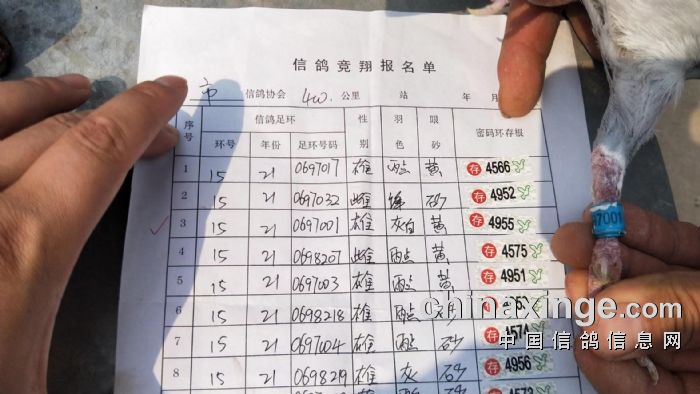 信鸽竞翔报名单
市 信鸽协会 400 公里 站 年 月
序号 信鸽足环 性别 羽色 眼砂 密码环存根
环号 年份 足环号码
1 15 21 0697017 雄 黄 存 4566
2 15 21 0697032 雌 砂 存 4952
3 15 21 0697001 雄 灰白 黄 存 4955
4 15 21 0698207 雌 黄 存 4575
5 15 21 0697003 雄 黄 存 4951
6 15 21 0698218 雄 砂
7 15 21 0697004 雄 砂 存 4574
8 15 21 0698219 雄 灰 砂 存 4956
7001
chinaxinge.com
中国信鸽信息网